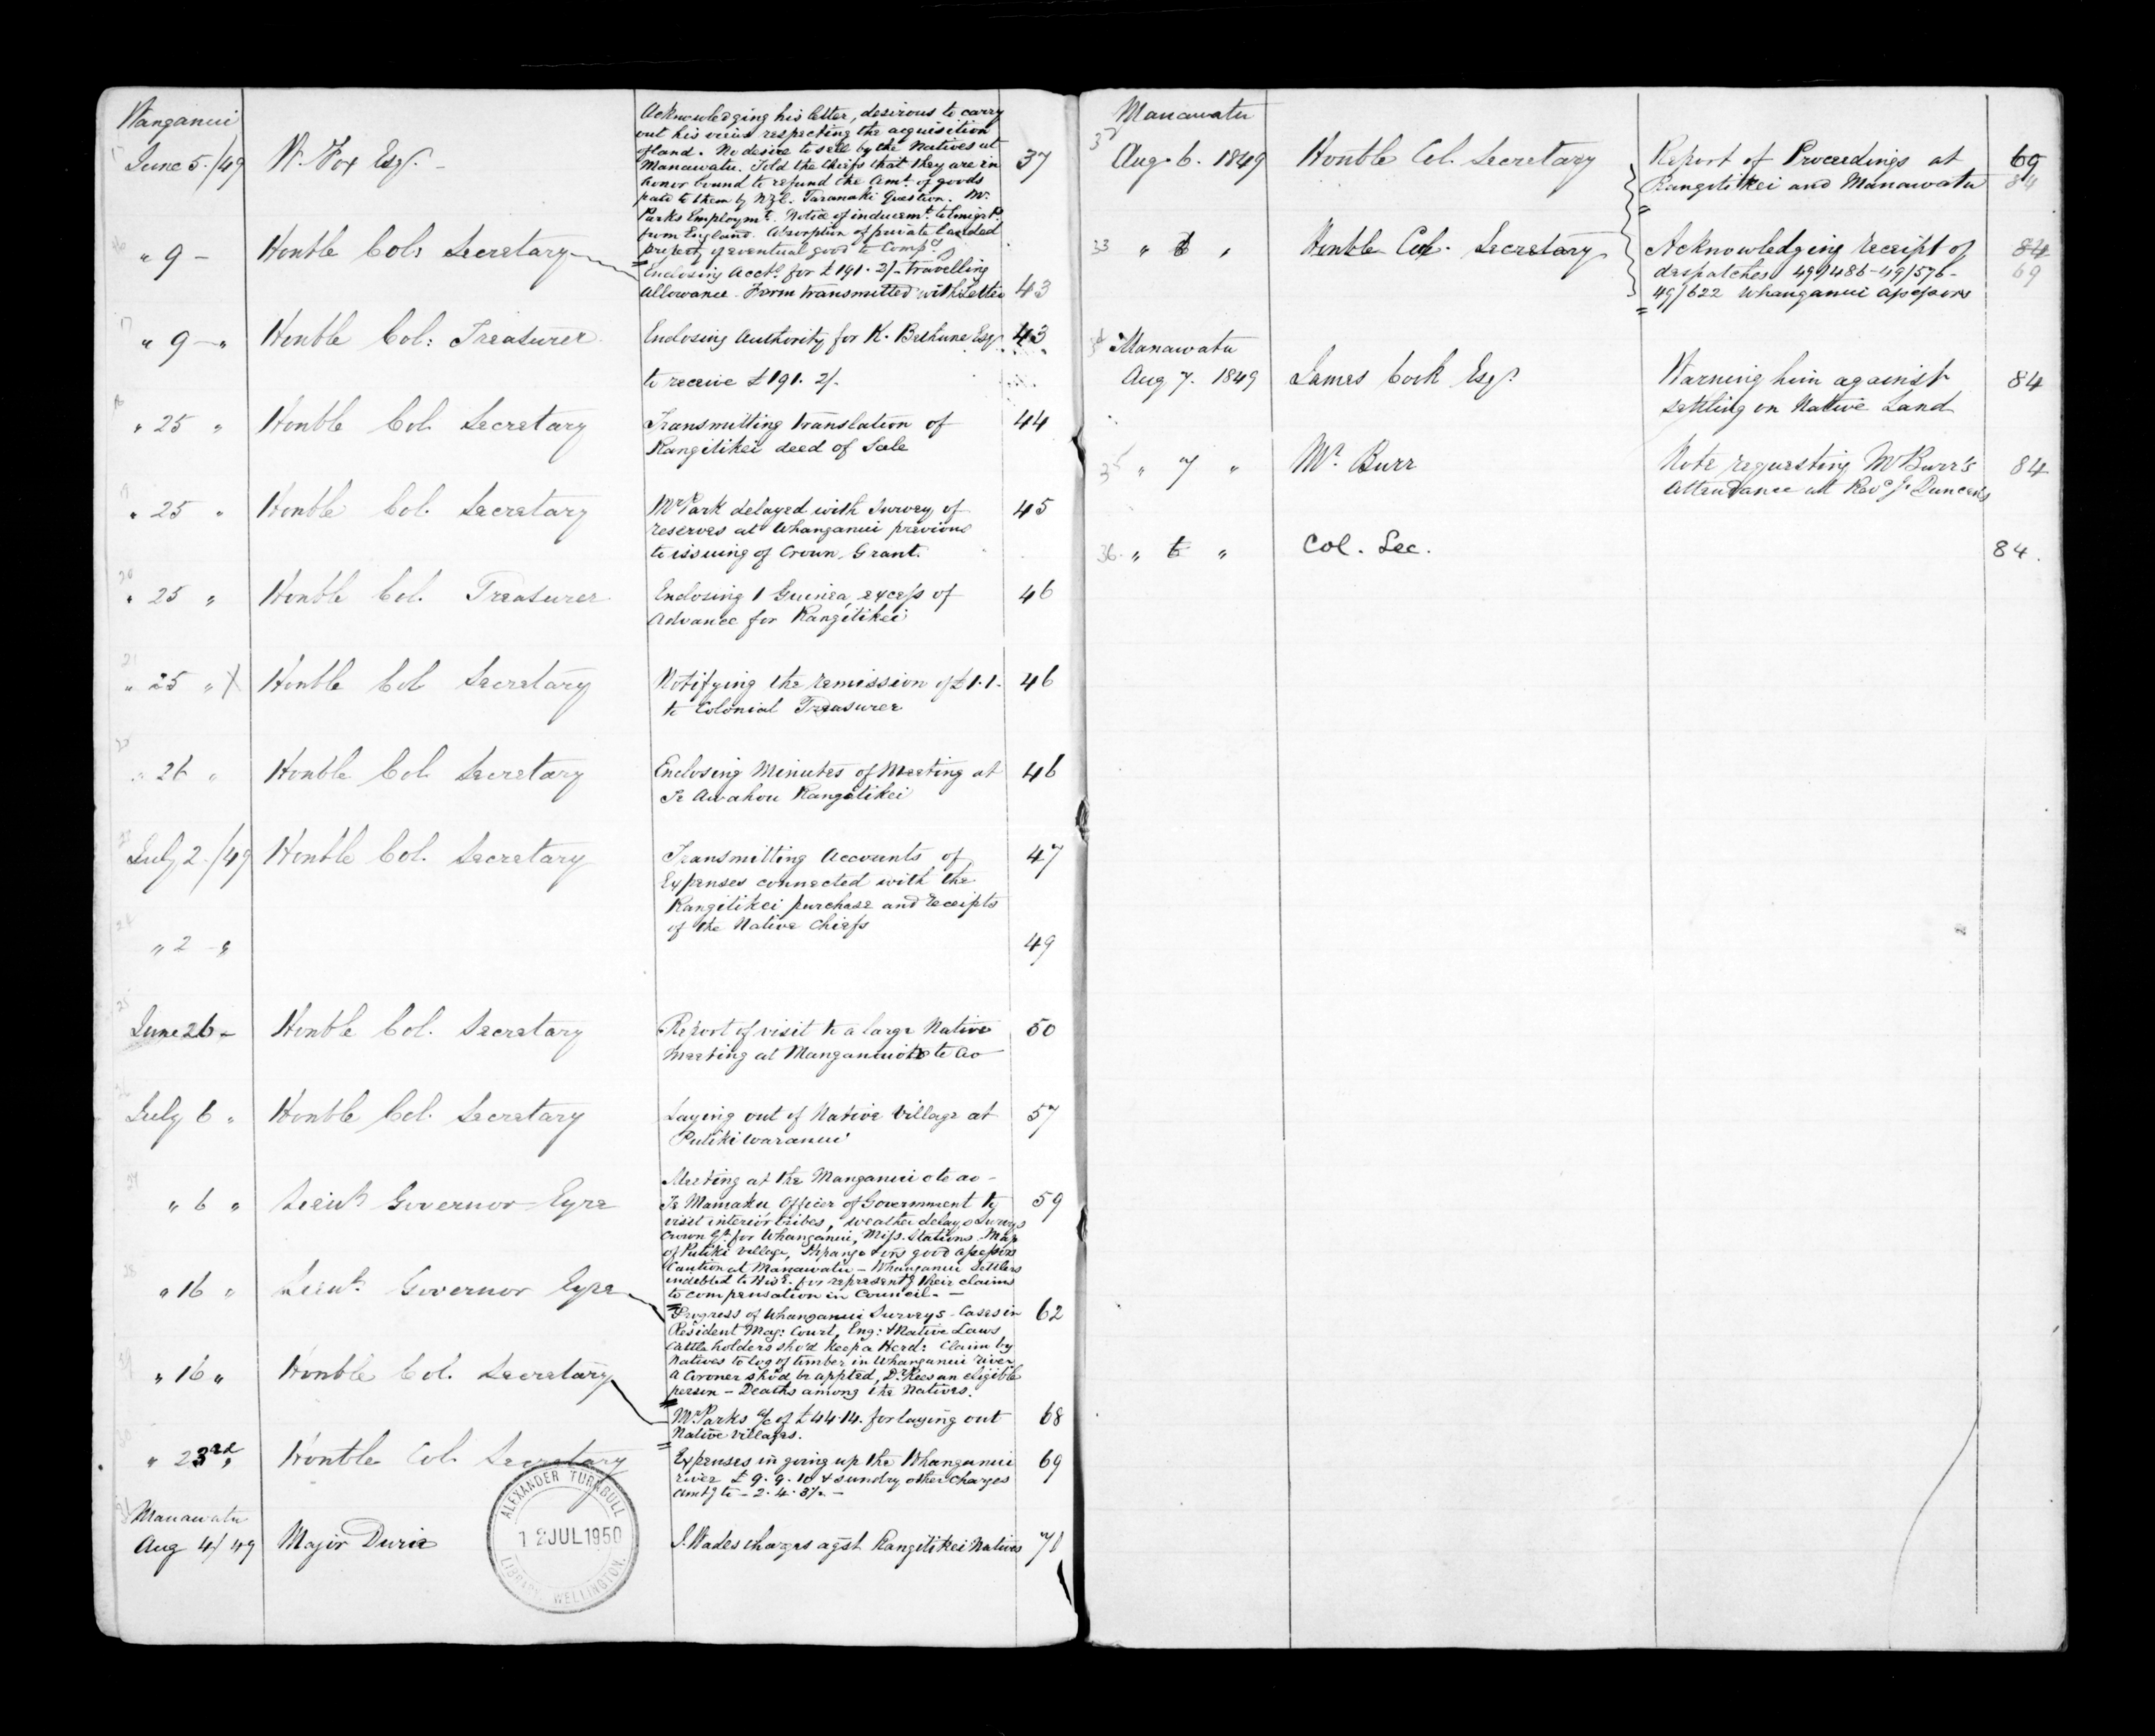 Wanganui
15 June 5./49 W. Fox Esqr. -
Acknowledging his letter, desirous to carry
out his views respecting the acquisition
of land. No desire to sell by the Natives at
Manawatu. Told the Chiefs that they are in
honor bound to refund the Amt. of goods
paid to them by N.Z.C. Taranaki Question. Mr.
Parks Employmt. Notice of inducemt. to Emigrt.
from England. Absorption of private landed
property of eventual good to Compy
37
16 " 9 - Honble Col: Secretary
Enclosing Acct. for £191. 2/- Travelling
allowance. Form transmitted with Letter 43
17 " 9 - " Honble Col: Treasurer Enclosing Authority for K. Bethune Esqr 43
to receive £191. 2/.
18 " 25 " Honble Col. Secretary Transmitting translation of 44
Rangitikei deed of Sale
19 " 25 " Honble Col. Secretary Mr Park delayed with Survey of 45
reserves at Whanganui previous
to issuing of Crown Grant.
20 " 25 " Honble Col. Treasurer Enclosing 1 Guinea, excess of 46
Advance for Rangitikei
21 " 25 " X Honble Col Secretary Notifying the remission of £1.1. 46
to Colonial Treasurer
22 " 26 " Honble Col. Secretary Enclosing Minutes of Meeting at 46
Te Awahou Rangitikei
23 July 2./49 Honble Col. Secretary Transmitting Accounts of 47
Expenses connected with the
Rangitikei purchase and receipts
of the Native Chiefs
24 " 2 - " 49
25 June 26 - Honble Col. Secretary Report of visit to a large Native 50
meeting at Manganuiote te ao
26 July 6 " Honble Col. Secretary Laying out of Native Village at 57
Putiki waranui
27 " 6 " Lieut Governor Eyre
Meeting at the Manganui o te ao -
Te Mamaku Officer of Government to 59
visit interior tribes, weather delays Surveys
Crown Gt. for Whanganui, Miss. Stations. Map
of Putiki Village, good assessors
Caution at Manawatu - Whanganui Settlers
indebted to His E. for representg their claims
to compensation in Council. -
28 " 16 " Lieut. Governor Eyre
Progress of Whanganui Surveys. Cases in 62
Resident Mag: Court, Eng: & Native Laws
Cattle holders sho'd keep a Herd: Claim by
Natives to log of timber in Whanganui river
A Coroner sho'd be appted, Dr. Rees an eligible
person - Deaths among the Natives.
29 " 16 " Honble Col. Secretary
Mr Parks a/c of £44.14. for laying out 68
Native Villages.
30 " 23rd " Honble Col. Secretary Expenses in going up the Whanganui 69
river £9.9.10 & sundry other charges
amtg to - 2.4.3½ -
31 Manawatu
Aug 4/49 Major Durie J. Wades charges agst Rangitikei Natives 71
ALEXANDER TURNBULL
12 JUL 1950
LIBRARY, WELLINGTON.
Manawatu
32 Aug. 6. 1849 Honble Col. Secretary Report of Proceedings at 69
Rangitikei and Manawatu 84
33 " 6 " Honble Col. Secretary Acknowledging receipt of 84
despatches 49/486 - 49/576 - 69
49/622 Whanganui assessors
34 Manawatu
Aug 7. 1849 James Cook Esqr. Warning him against 84
settling on Native Land
35 " 7 " Mr. Burr Note requesting Mr Burr's 84
Attendance at Revd. J. Duncan's
36. " 6 " Col. Sec. 84.